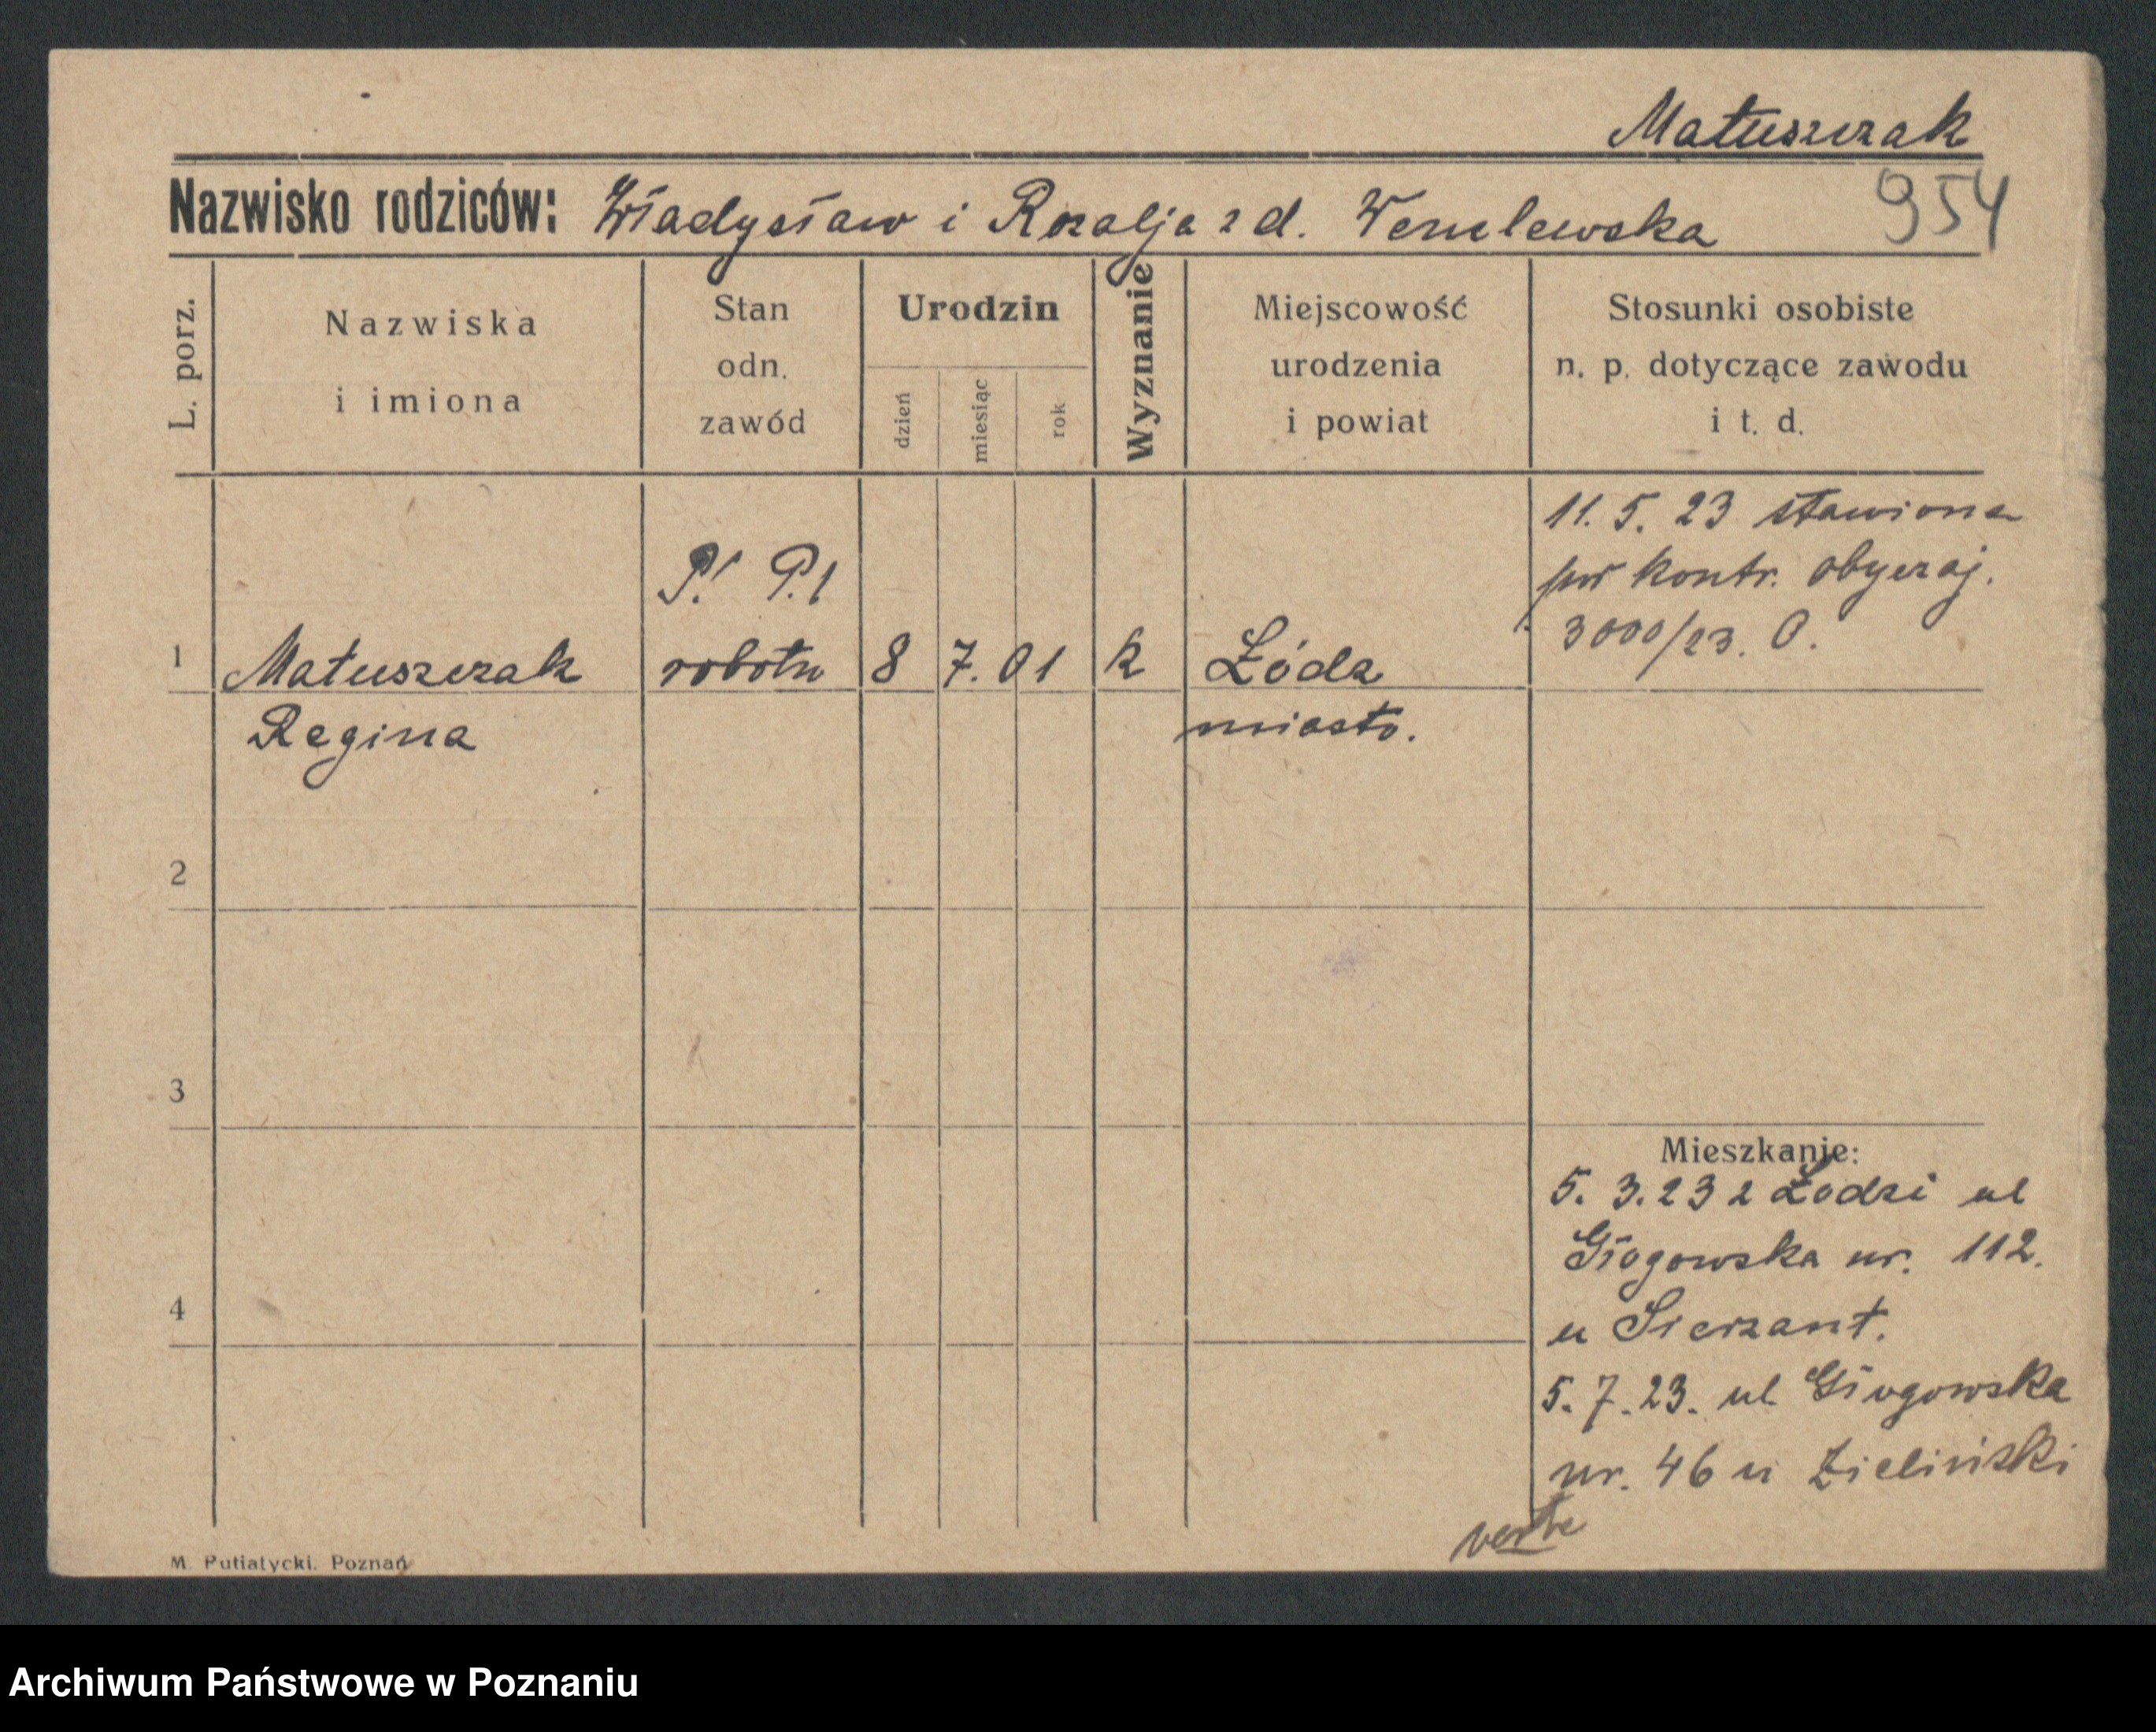 Matuszczak
Nazwisko rodziców: Władysław i Rozalja z d.
954
L. porz.
Nazwiska
i imiona
Stan
odn.
zawód
Urodzin
dzień
miesiąc
rok
Wyznanie
Miejscowość
urodzenia
i powiat
Stosunki osobiste
n. p. dotyczące zawodu
i t. d.
11. 5. 23 stawiona
kontr. obyczaj.
3000/23. O.
P! P.!
1 Matuszczak robotn 8 7. 01 k Łódz
Regina miasto.
2
3
4
Mieszkanie:
5. 3. 23 z Łodzi ul
Głogowska nr. 112.
u Sierzant.
5. 7. 23. ul Głogowska
nr. 46 u Zieliński
verte
M. Putiatycki. Poznań
Archiwum Państwowe w Poznaniu